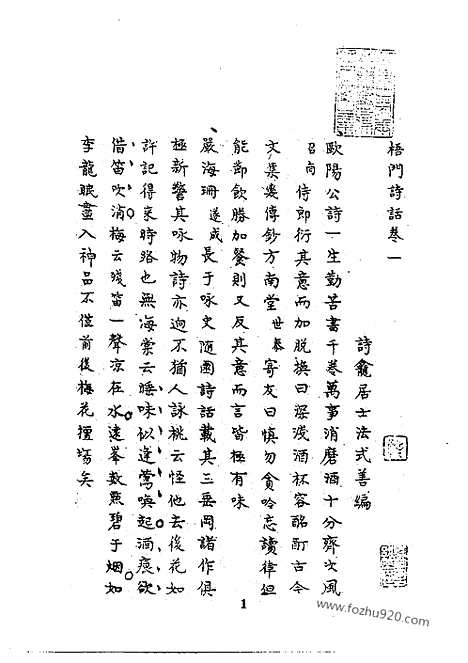 梧門詩話卷一
詩龕居士法式善編
歐陽公詩一生勤苦書千卷萬事消磨酒十分齊次風
召南侍郎衍其意而加脫換曰深淺酒杯容酩酊古今
文集婁傳鈔方南堂世舉寄友曰慎勿貪吟忘讀律但
能節飲勝加餐則又反其意而言皆極有味
嚴海珊遂成長于咏史隨園詩話載其三垂岡諸作俱
極新警其咏物詩亦迥不猶人詠桃云怪他去後花如
許記得来時路也無海棠云睡味似逢鶯喚起酒痕欲
借笛吹消梅云殘笛一聲涼在水遠峯數點碧于烟如
李龍眠畫入神品不僅前後梅花擅場矣
1
www.fozhu920.com